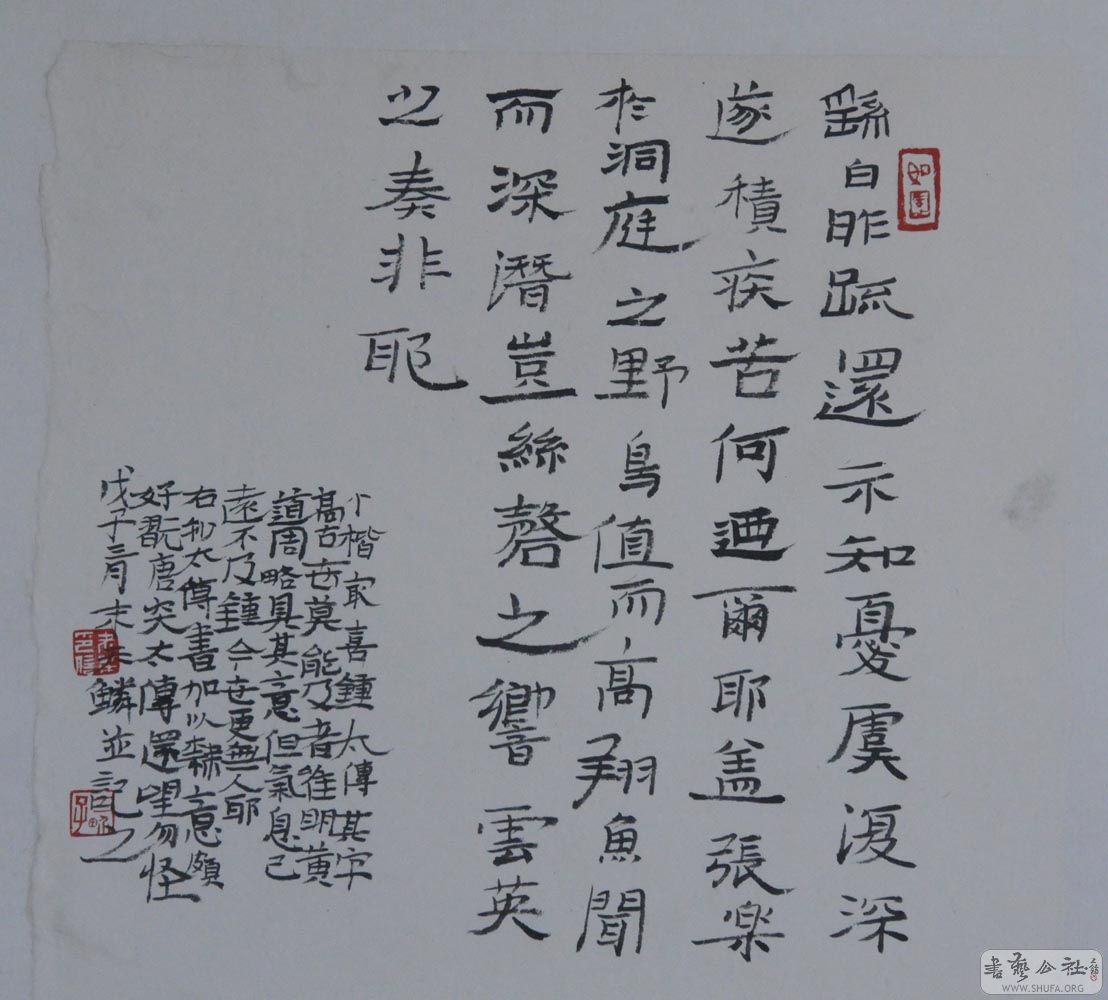 繇白昨疏還示知憂虞復深
遂積疾苦何迺爾耶蓋張樂
於洞庭之野鳥值而高翔魚聞
而深潛豈絲磬之響雲英
之奏非耶
小楷最喜鍾太傅其字
高古世莫能及者唯明黃
道周略具其意但氣息已
遠不及鍾今世更無人耶
右抄太傅書加以隸意頗
好翫唐突太傅還望勿怪
戊子三月末朱鱗並記之
書藝公社
WWW.SHUFA.ORG